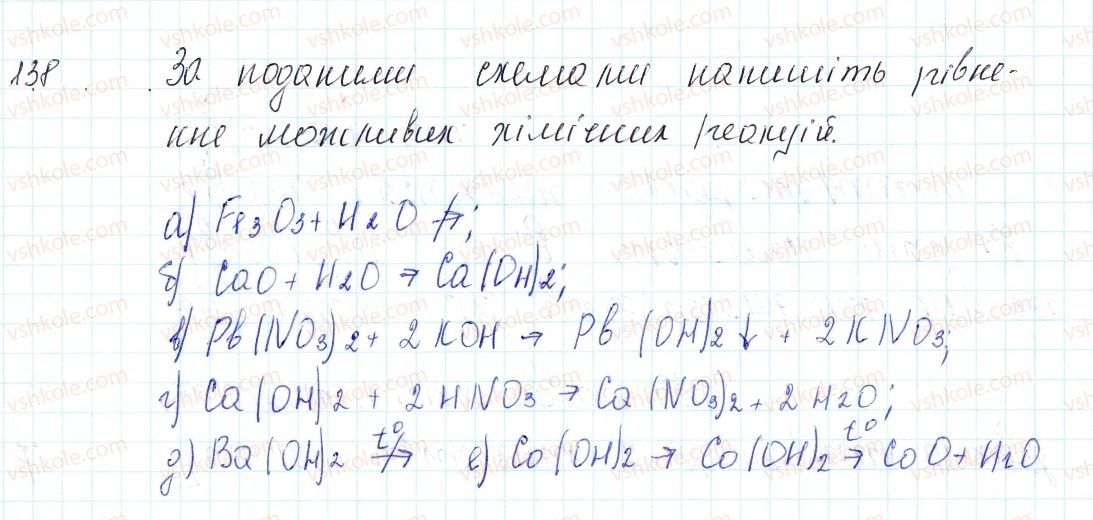 138. За поданими схемами напишіть рівне-
ння можливих хімічних реакцій.
а) Fe3O3 + H2O ↛;
б) CaO + H2O → Ca(OH)2;
в) Pb(NO3)2 + 2KOH → Pb(OH)2↓ + 2KNO3;
г) Ca(OH)2 + 2HNO3 → Ca(NO3)2 + 2H2O;
д) Ba(OH)2 t°↛ е) Co(OH)2 → Co(OH)2 t°→ CoO + H2O
vshkole.com